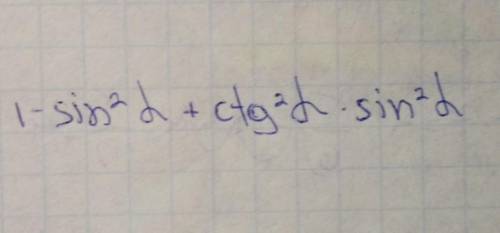 1-sin²α + ctg²α · sin²α